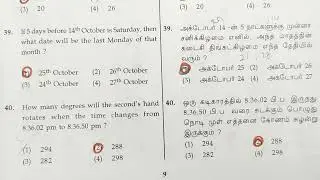 (3) 20 (4) 26
39. If 5 days before 14th October is Saturday, then
what date will be the last Monday of that
month ?
25th October (2) 24th October
(3) 26th October (4) 27th October
40. How many degrees will the second's hand
rotates when the time changes from
8.36.02 pm to 8.36.50 pm ?
(1) 294 288
(3) 282 (4) 298
(3) 20 (4) 26
39. அக்டோபர் 14 -ன் 5 நாட்களுக்கு முன்னர்
சனிக்கிழமை எனில், அந்த மாதத்தின்
கடைசி திங்கட்கிழமை எந்த தேதியில்
வரும் ?
அக்டோபர் 25 (2) அக்டோபர் 24
(3) அக்டோபர் 26 (4) அக்டோபர் 27
40. ஒரு கடிகாரத்தில் 8.36.02 பி.ப இருந்து
8.36.50 பி.ப வரை கடக்கும் பொழுது
நொடி முள் எத்தனை கோணம் சுழன்று
இருக்கும் ?
(1) 294 288
(3) 282 (4) 298
9